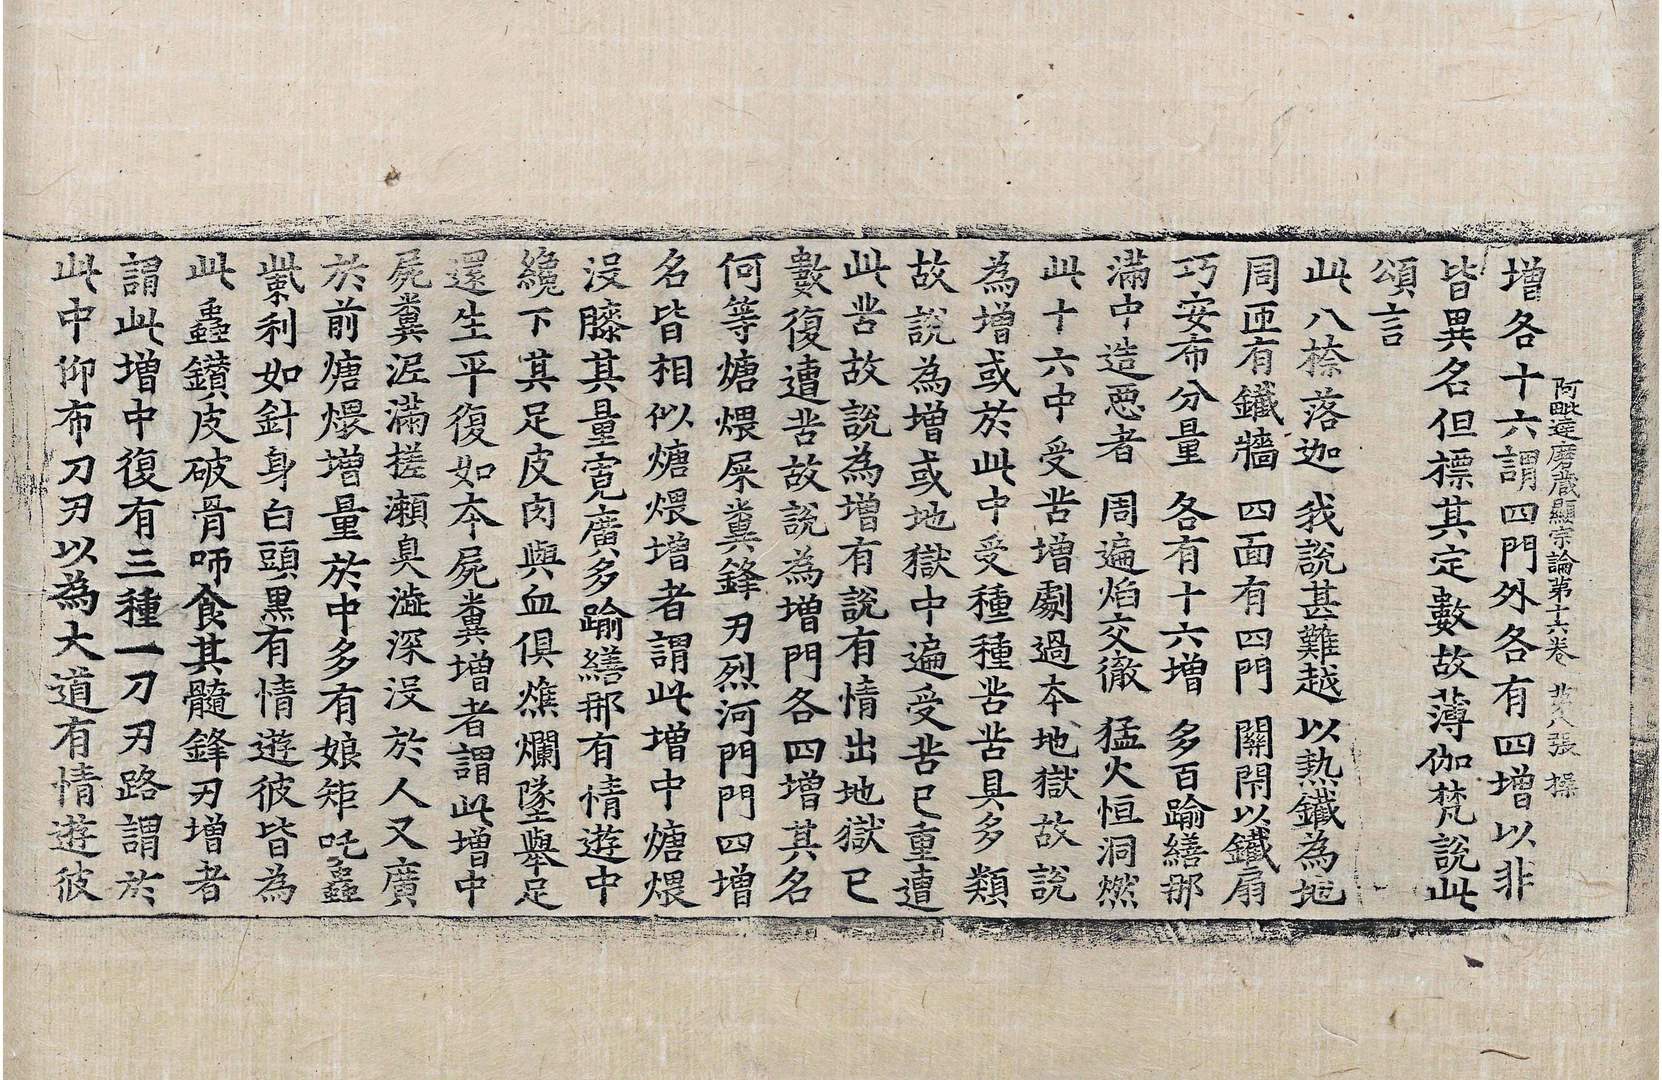 阿毗達磨藏顯宗論第十六卷 苐八張 㨪
增各十六謂四門外各有四增以非
皆異名但標其定數故薄伽梵說此
頌言
此八捺落迦 我說甚難越 以熱鐵為地
周匝有鐵牆 四面有四門 關閇以鐵扇
巧安布分量 各有十六增 多百踰繕那
滿中造惡者 周遍焰交徹 猛火恒洞燃
此十六中受苦增劇過本地獄故說
為增或於此中受種種苦苦具多類
故說為增或地獄中遍受苦已重遭
此苦故說為增有說有情出地獄已
數復遭苦故說為增門各四增其名
何等煻煨屎糞鋒刃烈河門門四增
名皆相似煻煨增者謂此增中煻煨
沒膝其量寬廣多踰繕那有情遊中
纔下其足皮肉與血俱燋爛墜舉足
還生平復如本屍糞增者謂此增中
屍糞泥滿搓瀨臭澁深沒於人又廣
於前煻煨增量於中多有娘矩吒蟲
觜利如針身白頭黑有情遊彼皆為
此蟲鑽皮破骨咂食其髓鋒刃增者
謂此增中復有三種一刀刃路謂於
此中仰布刀刃以為大道有情遊彼